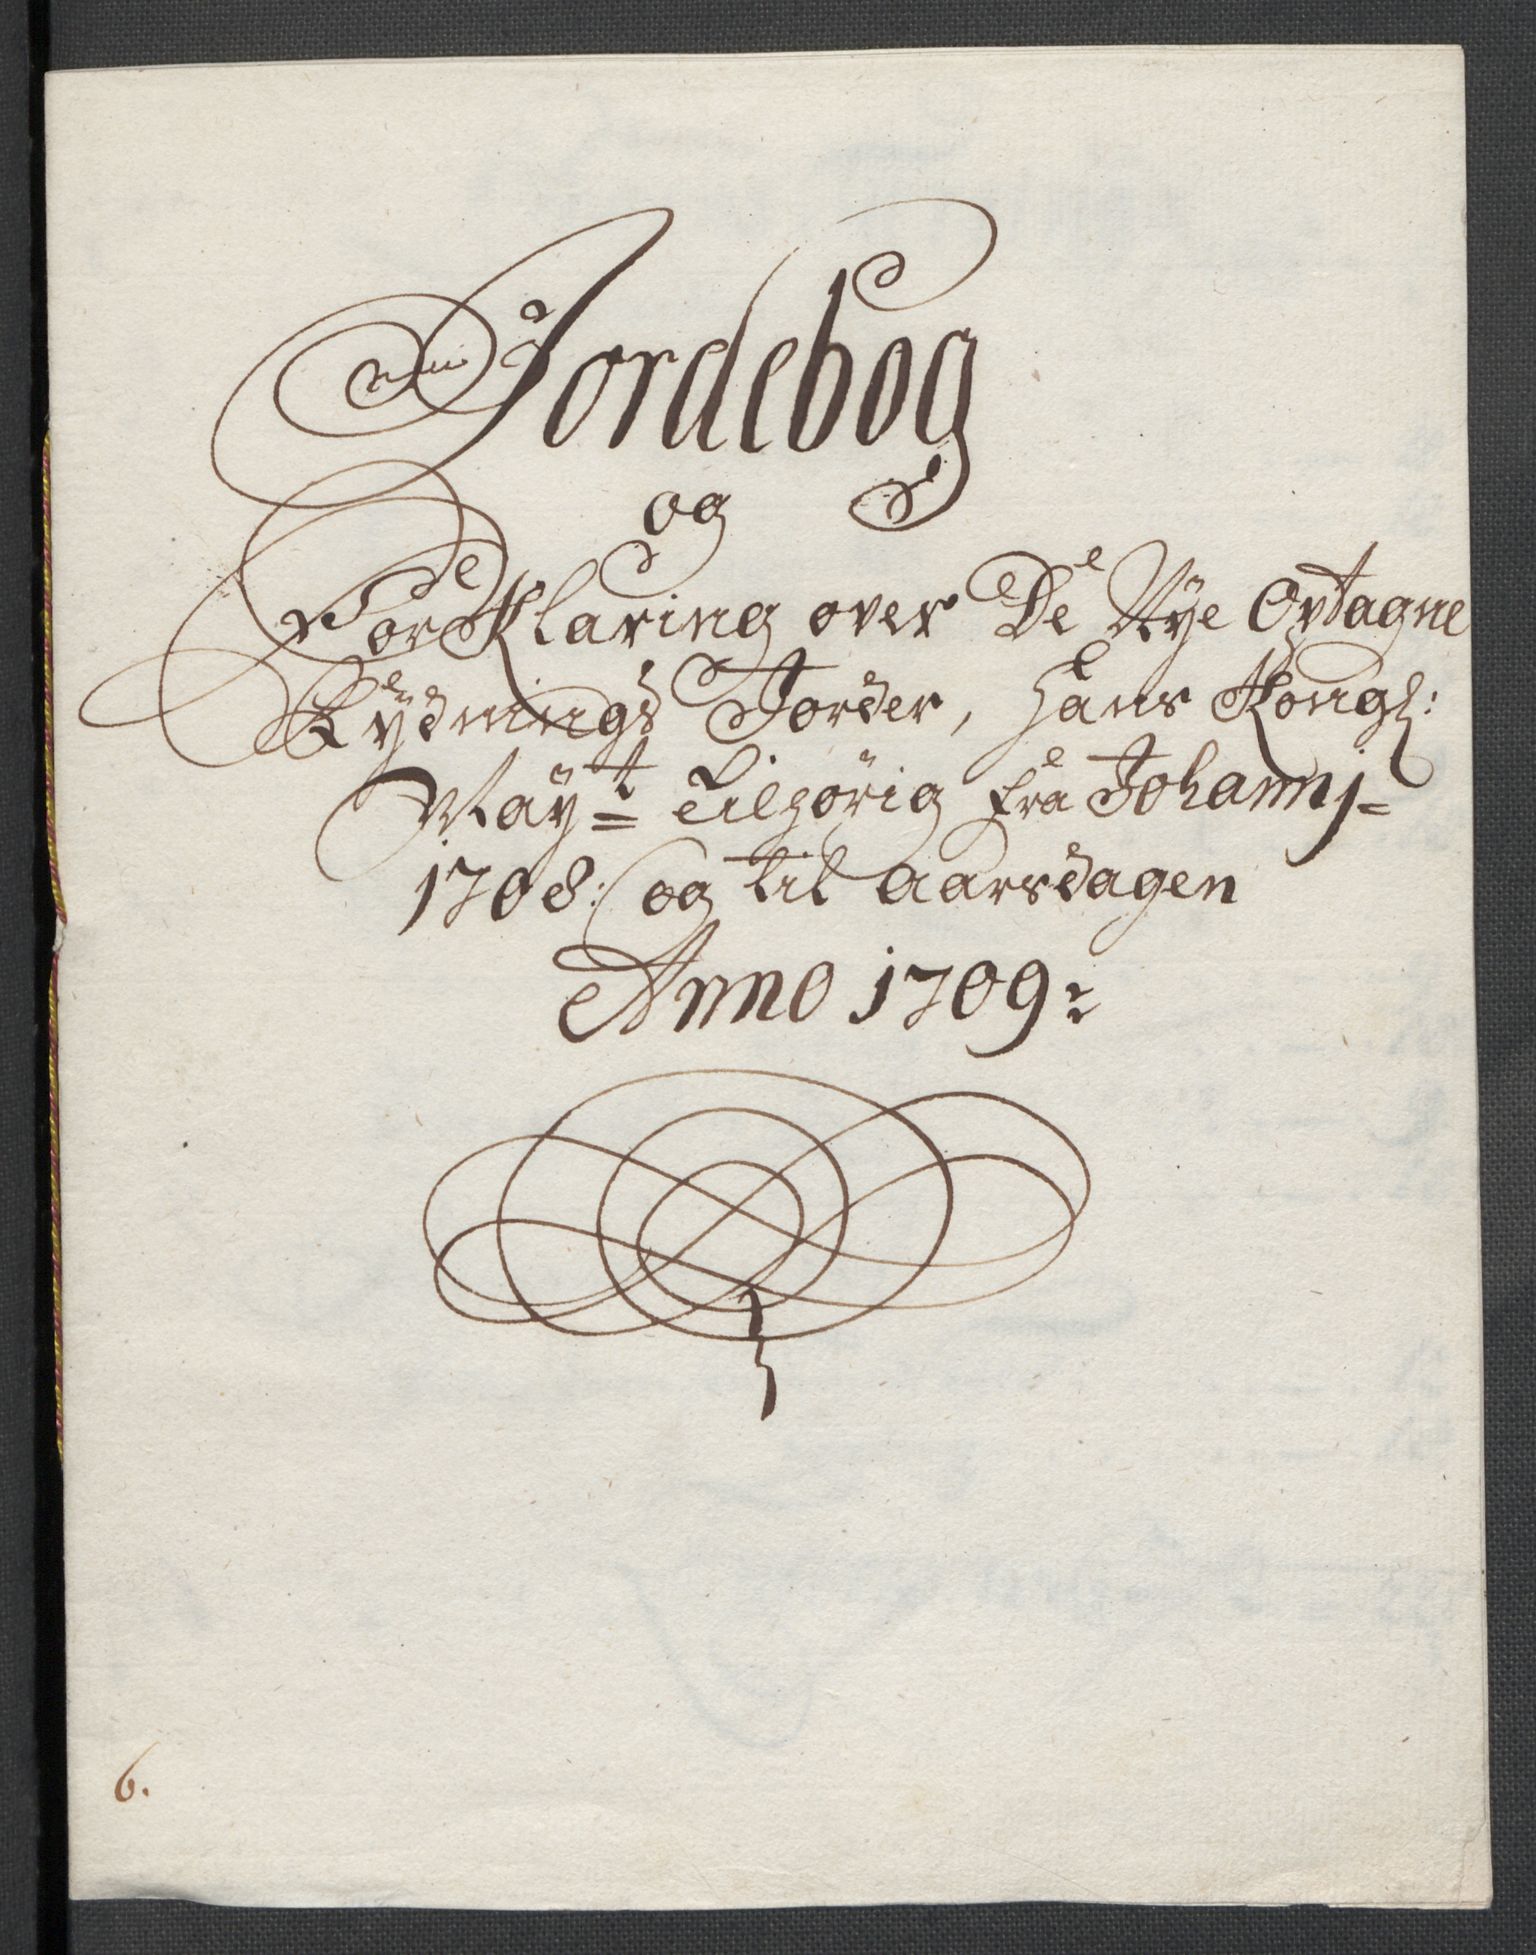 Jordebog
og
Forklaring over De Nye Optagne
Rydnings Jorder, Hans Kongl:
Mayt= Tilhörig fra Johannj=
1708: og til aarsdagen
Anno 1709:
6.